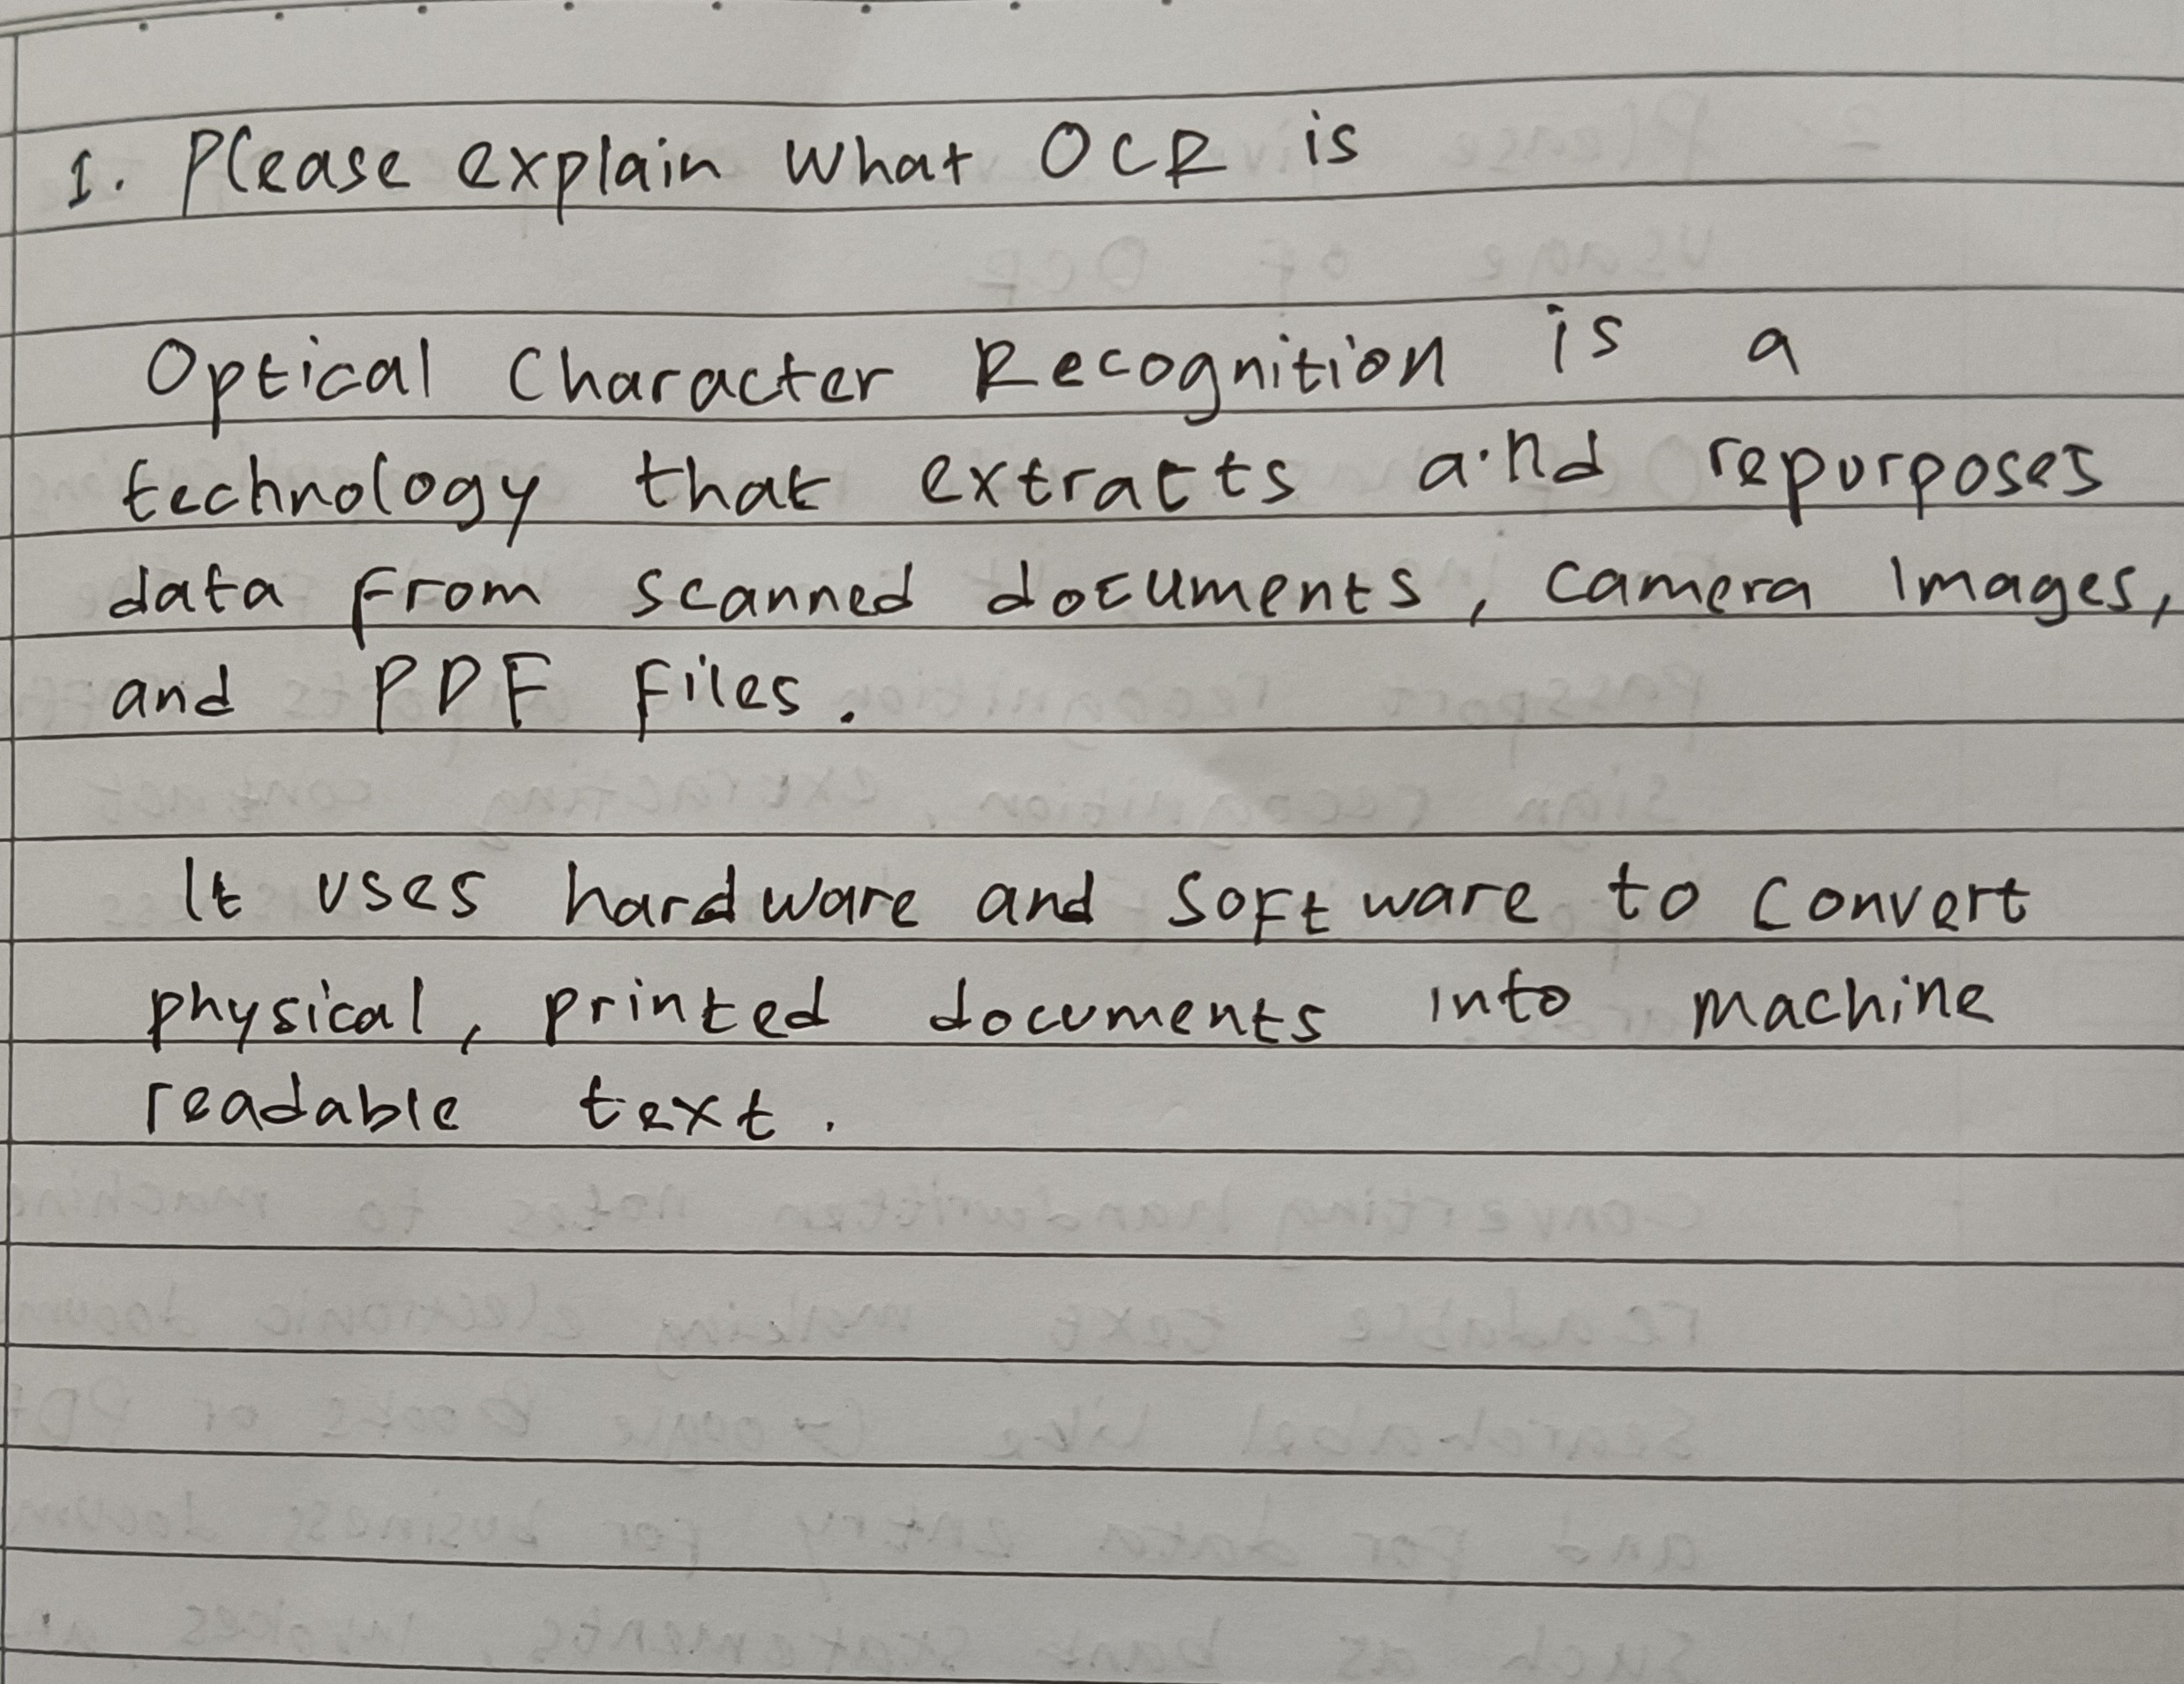 1. Please explain what OCR is
Optical Character Recognition is a
technology that extracts and repurposes
data from scanned documents, camera Images,
and PDF files.
It uses hardware and software to convert
physical, printed documents into machine
readable text.